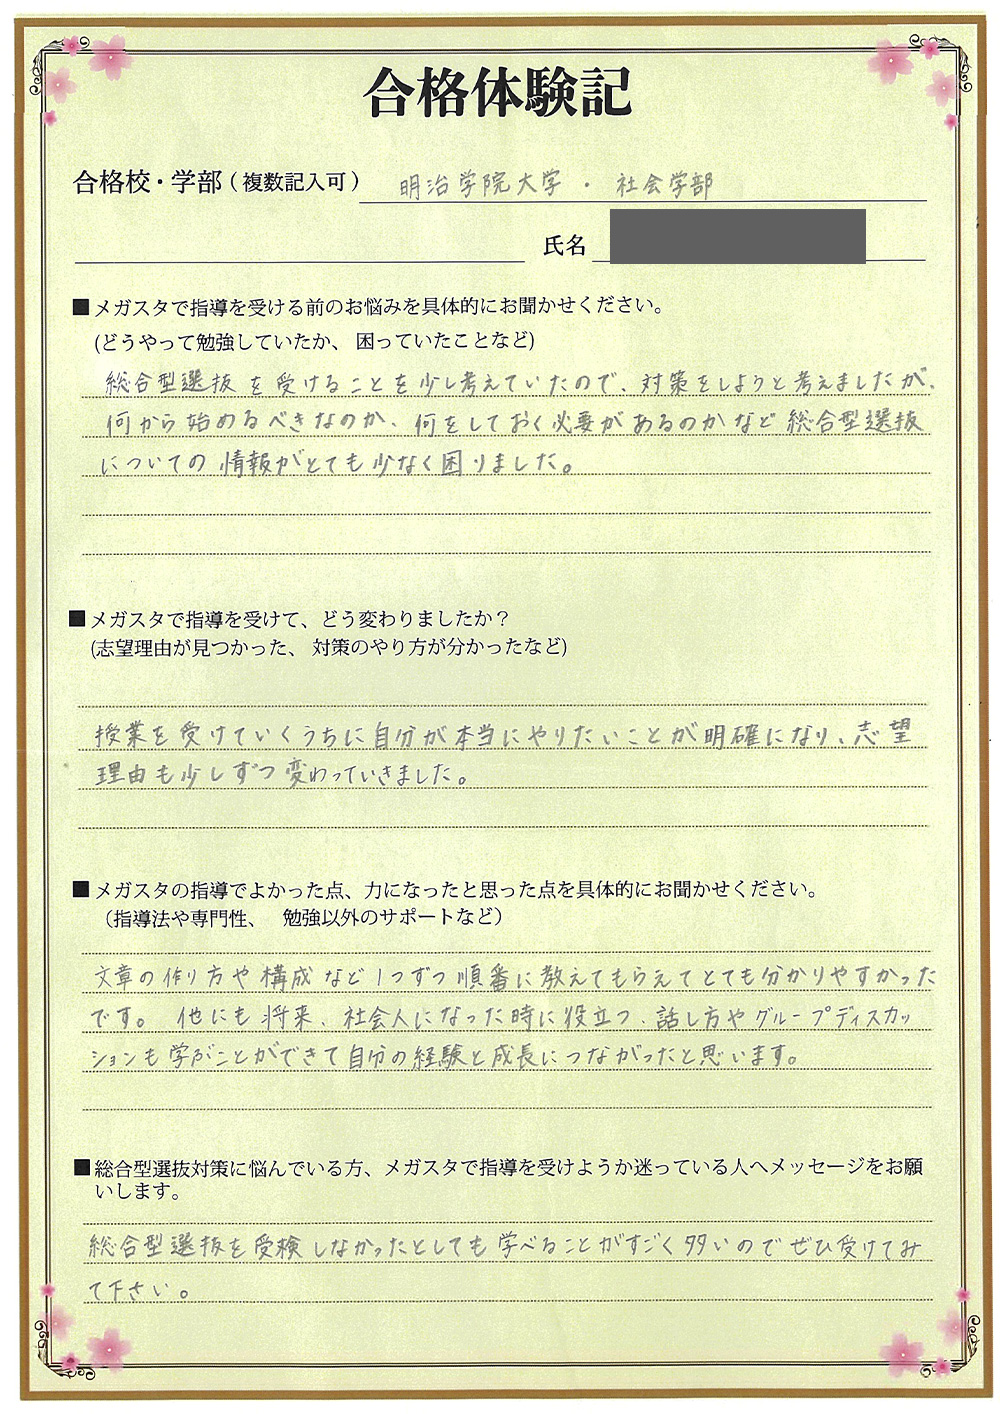 合格体験記
合格校・学部（複数記入可） 明治学院大学 ・ 社会学部
氏名
■メガスタで指導を受ける前のお悩みを具体的にお聞かせください。
(どうやって勉強していたか、困っていたことなど)
総合型選抜を受けることを少し考えていたので、対策をしようと考えましたが、
何から始めるべきなのか、何をしておく必要があるのかなど総合型選抜
についての情報がとても少なく困りました。
■メガスタで指導を受けて、どう変わりましたか？
(志望理由が見つかった、対策のやり方が分かったなど)
授業を受けていくうちに自分が本当にやりたいことが明確になり、志望
理由も少しずつ変わっていきました。
■メガスタの指導でよかった点、力になったと思った点を具体的にお聞かせください。
（指導法や専門性、 勉強以外のサポートなど）
文章の作り方や構成など1つずつ順番に教えてもらえてとても分かりやすかった
です。 他にも将来、社会人になった時に役立つ、話し方やグループディスカッ
ションも学ぶことができて自分の経験と成長につながったと思います。
■総合型選抜対策に悩んでいる方、メガスタで指導を受けようか迷っている人へメッセージをお願
いします。
総合型選抜を受検しなかったとしても学べることがすごく多いのでぜひ受けてみ
て下さい。